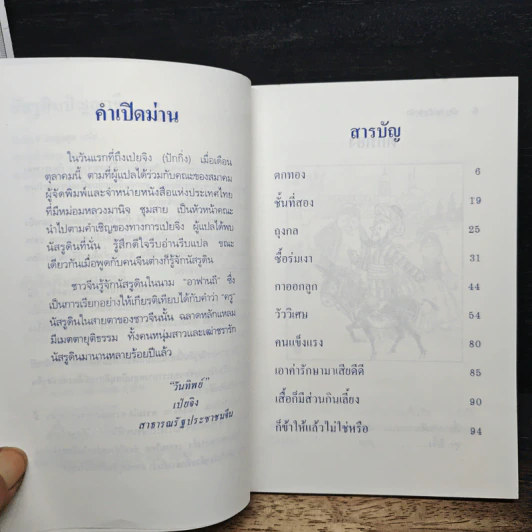 คำเปิดม่าน
ในวันแรกที่ถึงเป่ยจิง (ปักกิ่ง) เมื่อเดือน
ตุลาคมนี้ ตามที่ผู้แปลได้ร่วมกับคณะของสมาคม
ผู้จัดพิมพ์และจำหน่ายหนังสือแห่งประเทศไทย
ที่มีหม่อมหลวงมานิจ ชุมสาย เป็นหัวหน้าคณะ
นำไปตามคำเชิญของทางการเป่ยจิง ผู้แปลได้พบ
นัสรูดินที่นั่น รู้สึกดีใจรีบอ่านรีบแปล ขณะ
เดียวกันเมื่อพูดกับคนจีนต่างก็รู้จักนัสรูดิน
ชาวจีนรู้จักนัสรูดินในนาม "อาฟานถี" ซึ่ง
เป็นการเรียกอย่างให้เกียรติเทียบได้กับคำว่า "ครู"
นัสรูดินในสายตาของชาวจีนนั้น ฉลาดหลักแหลม
มีเมตตายุติธรรม ทั้งคนหนุ่มสาวและเฒ่าชรารัก
นัสรูดินมานานหลายร้อยปีแล้ว
"วันทิพย์"
เป่ยจิง
สาธารณรัฐประชาชนจีน
สารบัญ
ตกทอง 6
ชั้นที่สอง 19
ถุงกล 25
ซื้อร่มเงา 31
กาออกลูก 44
วัววิเศษ 54
คนแข็งแรง 80
เอาค่ารักษามาเสียดีดี 85
เสื้อก็มีส่วนกินเลี้ยง 90
ก็ข้าให้แล้วไม่ใช่หรือ 94